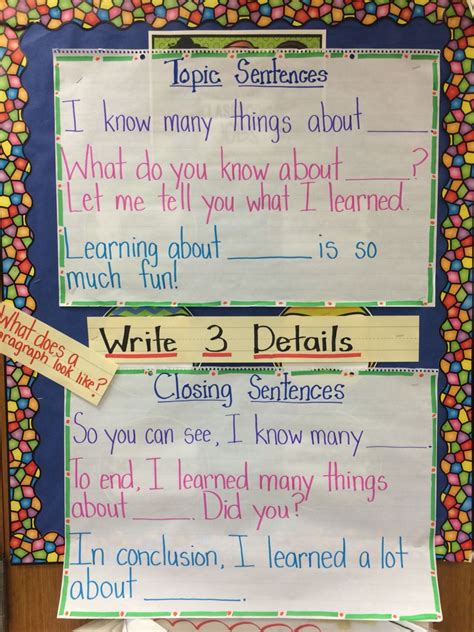 Topic Sentences
I know many things about ____
What do you know about ____?
Let me tell you what I learned.
Learning about ____ is so
much fun!
What does a
paragraph look like?
Write 3 Details
Closing Sentences
So you can see, I know many ____.
To end, I learned many things
about ____. Did you?
In conclusion, I learned a lot
about ____.